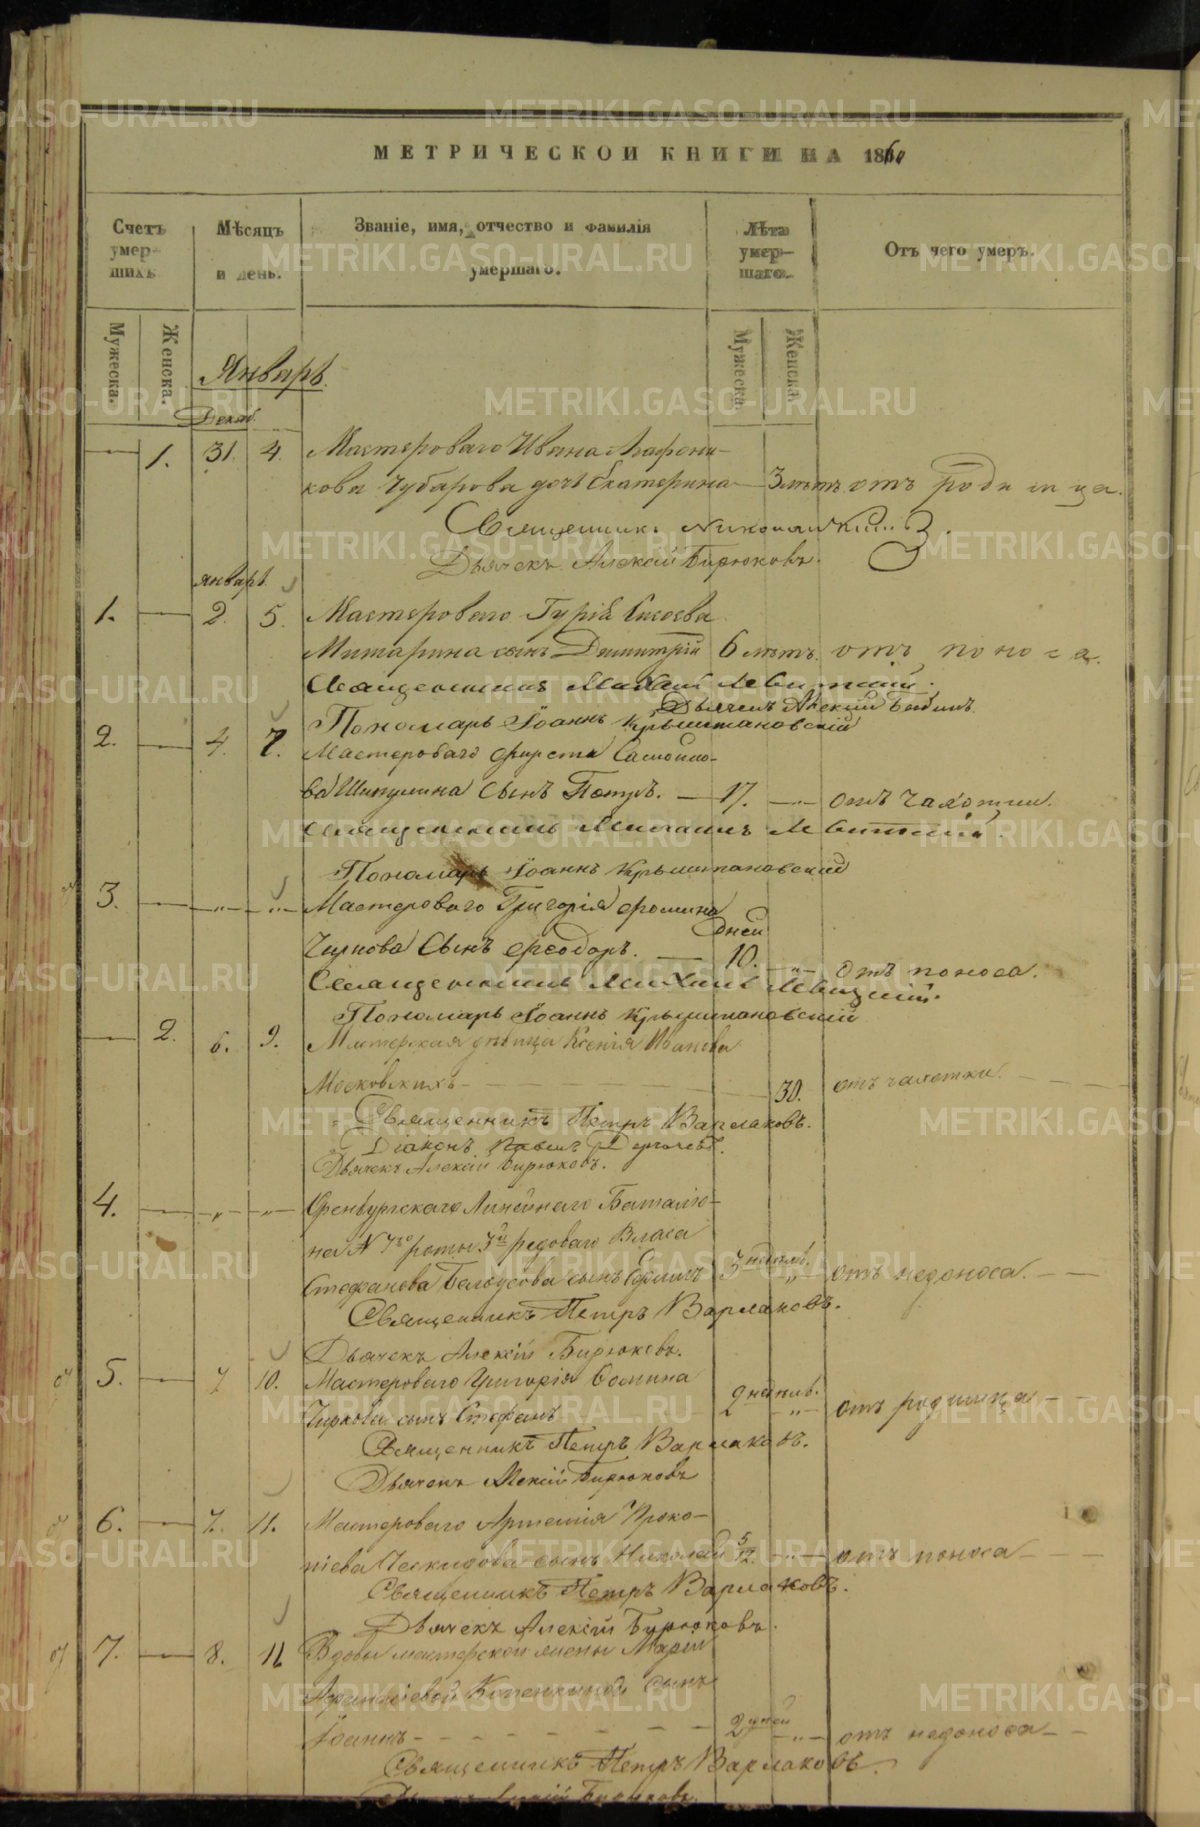 МЕТРИЧЕСКОЙ КНИГИ НА 1860
Счетъ умер- шихъ.
Мѣсяцъ и день.
Званіе, имя, отчество и фамилія умершаго.
Лѣта умер- шаго.
Отъ чего умеръ.
Мужеска. Женска. Мужеска. Женска.
Январь
Декаб.
1. 31. 4. Мастероваго Ивана Агафони-
кова Чубарова дочь Екатерина 3 лѣтъ отъ родимца.
Священникъ
Дьячекъ Алексій Бирюковъ.
январь
1. 2. 5. Мастероваго Гурія Сысоева
Митарина сынъ Димитрій 6 лѣтъ. отъ поноса.
Священникъ Михаилъ Левитскій.
Дьячекъ Алексий
Пономарь Іоаннъ Крыштановскій
2. 4. 7. Мастероваго Фирста Самойло-
ва Шипулина Сынъ Петръ. 17. отъ чахотки.
Священникъ Михаилъ Левитскій.
Пономарь Іоаннъ Крыштановский
3. Мастероваго Григорія Фомина
дней
Чиркова Сынъ Феодоръ. 10. Отъ поноса.
Священникъ Михаилъ Левитскій.
Пономарь Іоаннъ Крыштановскій
2. 6. 9. Мастерская дѣвица Ксенія Иванова
Московскихъ 30. отъ чахотки.
Священникъ Петръ Варлаковъ.
Діаконъ Павелъ
Дьячекъ Алексій Бирюковъ.
4. Оренбургскаго Линейнаго Баталіо-
на N 7го роты 3й рядоваго Власа
Стефанова Белоусова сынъ Ефимъ 3 недѣль. отъ недоноса.
Священникъ Петръ Варлаковъ.
Дьячекъ Алексій Бирюковъ.
5. 7 10. Мастероваго Григорія Фомина
Чиркова сынъ Стефанъ 2 недѣль. отъ родимца
Священникъ Петръ Варлаковъ.
Дьячекъ Алексій Бирюковъ
6. 7. 11. Мастероваго Артемія Проко-
піева Ческидова сынъ Николай 5/12. отъ поноса
Священникъ Петръ Варлаковъ.
Дьячекъ Алексій Бирюковъ.
7. 8. 11 Вдовы мастерской жены Маріи
Афанасіевой сынъ
Іоаннъ 2 дней отъ недоноса
Священникъ Петръ Варлаковъ.
METRIKI.GASO-URAL.RU